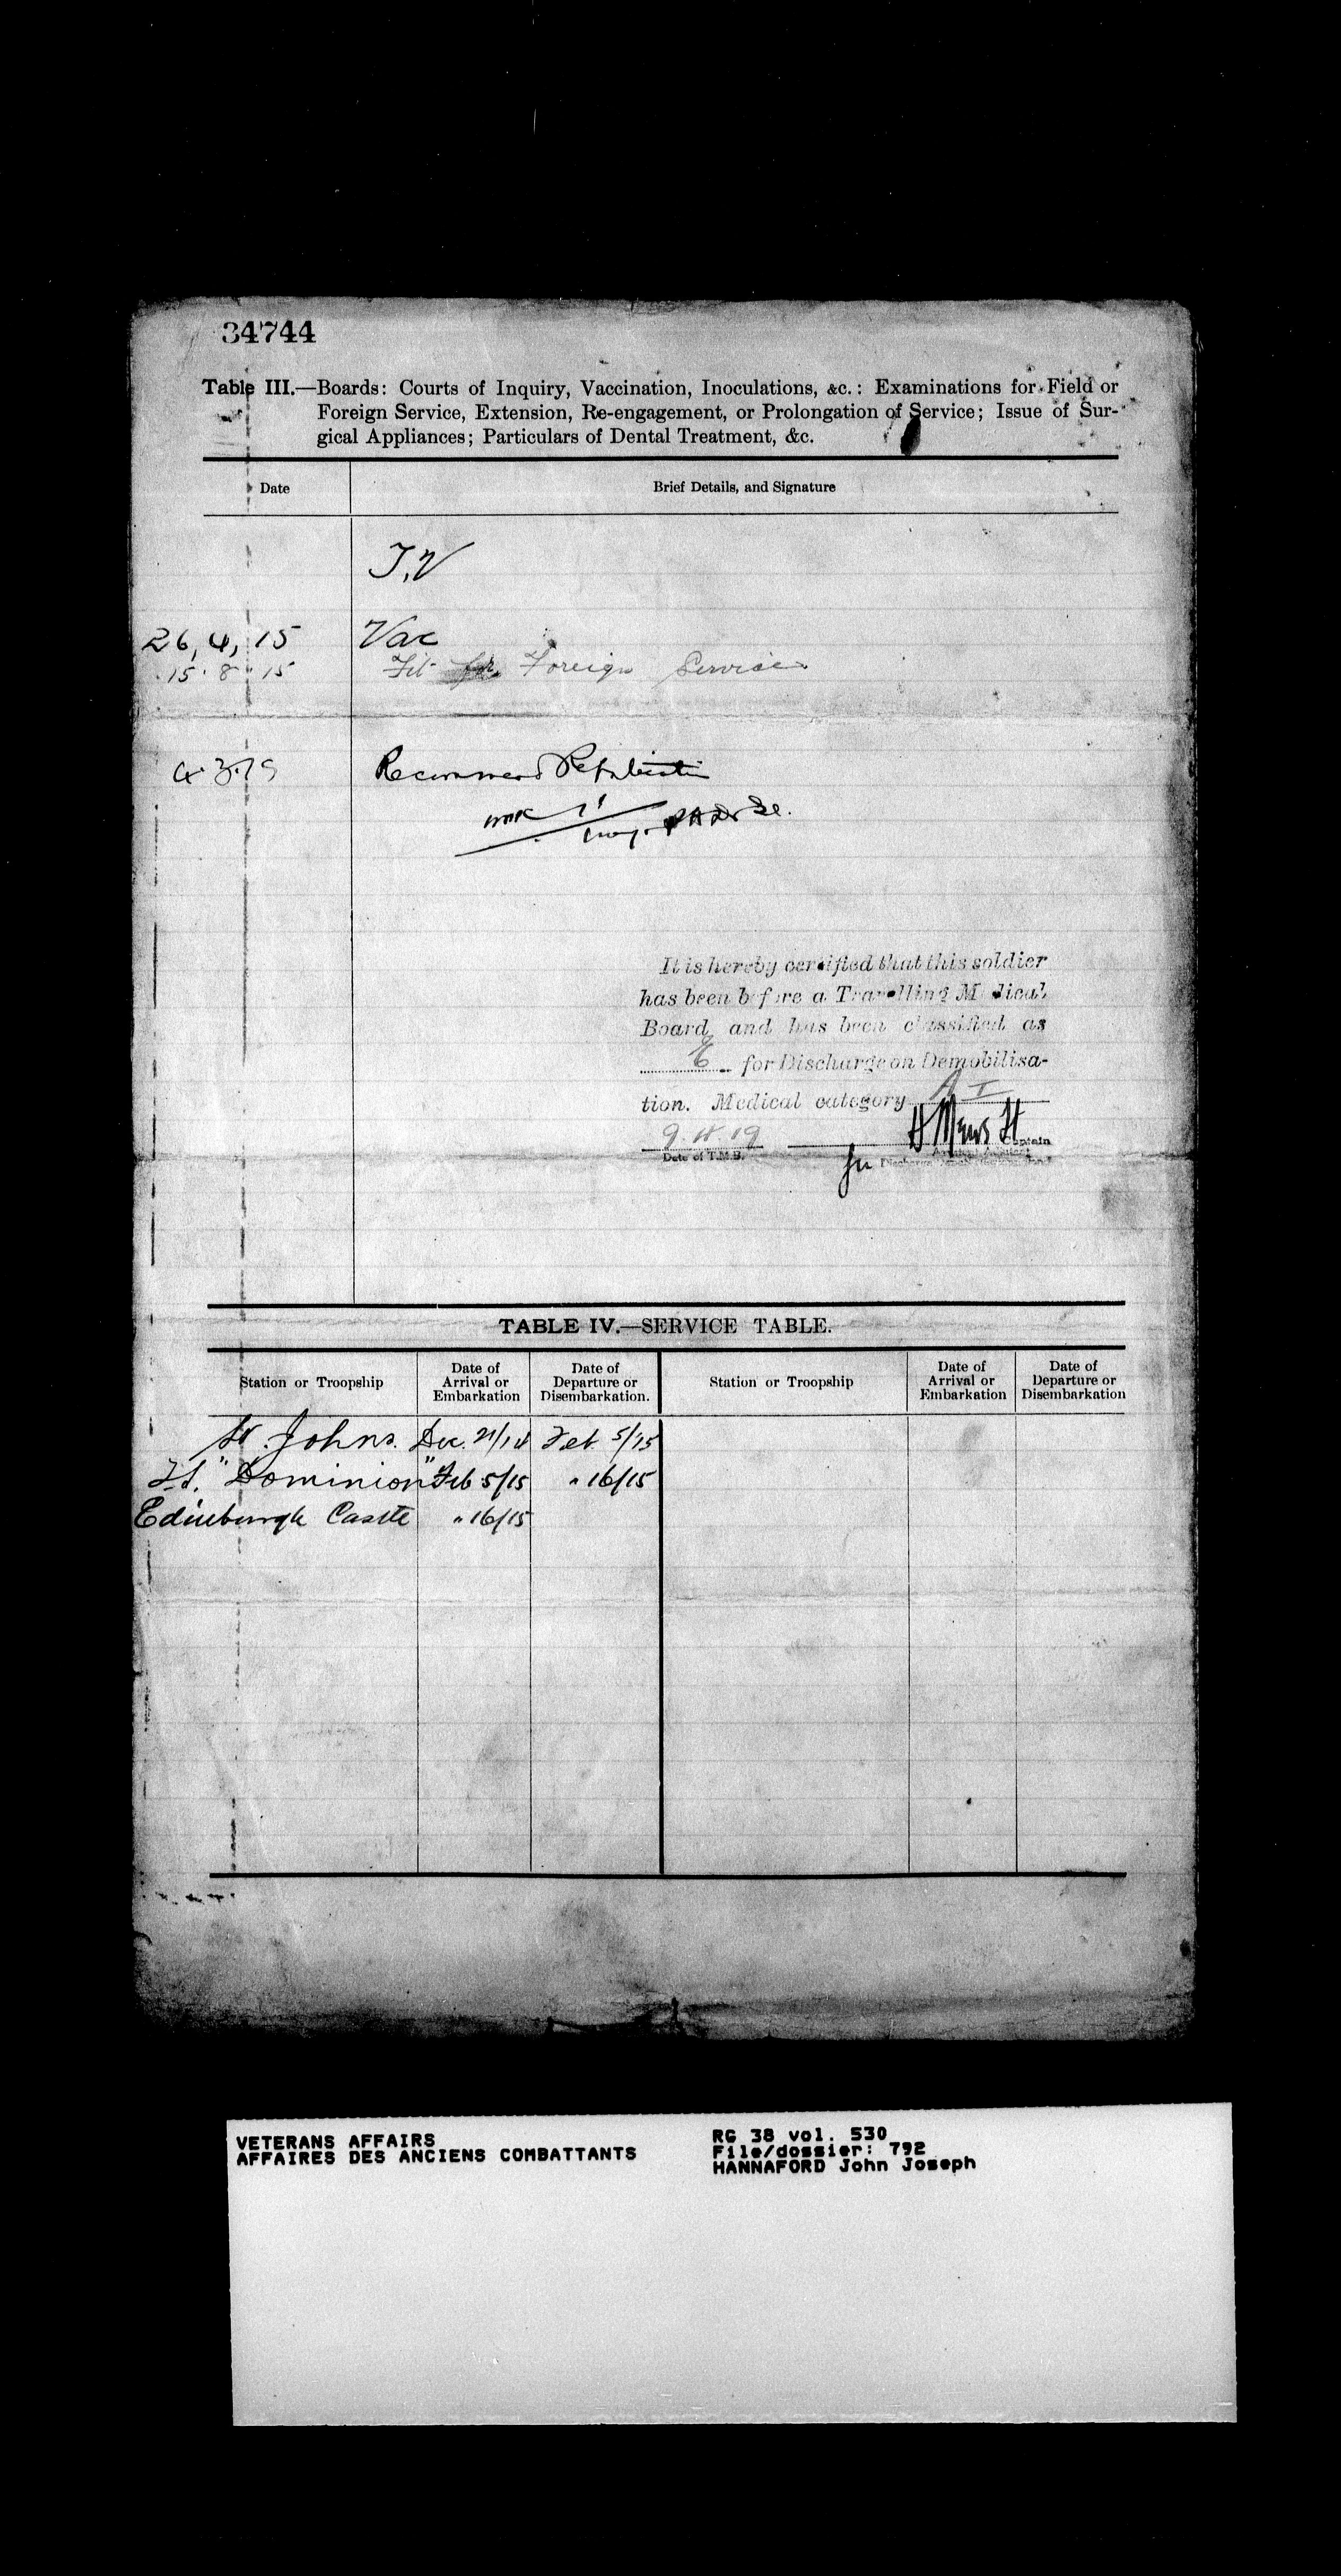 34744
Table III.—Boards: Courts of Inquiry, Vaccination, Inoculations, &c.: Examinations for Field or
Foreign Service, Extension, Re-engagement, or Prolongation of Service; Issue of Sur-
gical Appliances; Particulars of Dental Treatment, &c.
Date Brief Details, and Signature
T.V
26, 4, 15 Vac
15 · 8 · 15 Fit for Foreign Service
4·3·19 Recommend Repatriation
It is hereby certified that this soldier
has been before a Travelling Medical
Board and has been classified as
E for Discharge on Demobilisa-
tion. Medical category A I
Captain
Date of T.M.B.
TABLE IV.—SERVICE TABLE.
Station or Troopship Date of Arrival or Embarkation Date of Departure or Disembarkation. Station or Troopship Date of Arrival or Embarkation Date of Departure or Disembarkation
St. Johns. Dec. 21/14 Feb. 5/15
"Dominion" Feb 5/15 " 16/15
Edinburgh Castle " 16/15
VETERANS AFFAIRS
AFFAIRES DES ANCIENS COMBATTANTS
RG 38 vol. 530
File/dossier: 792
HANNAFORD John Joseph